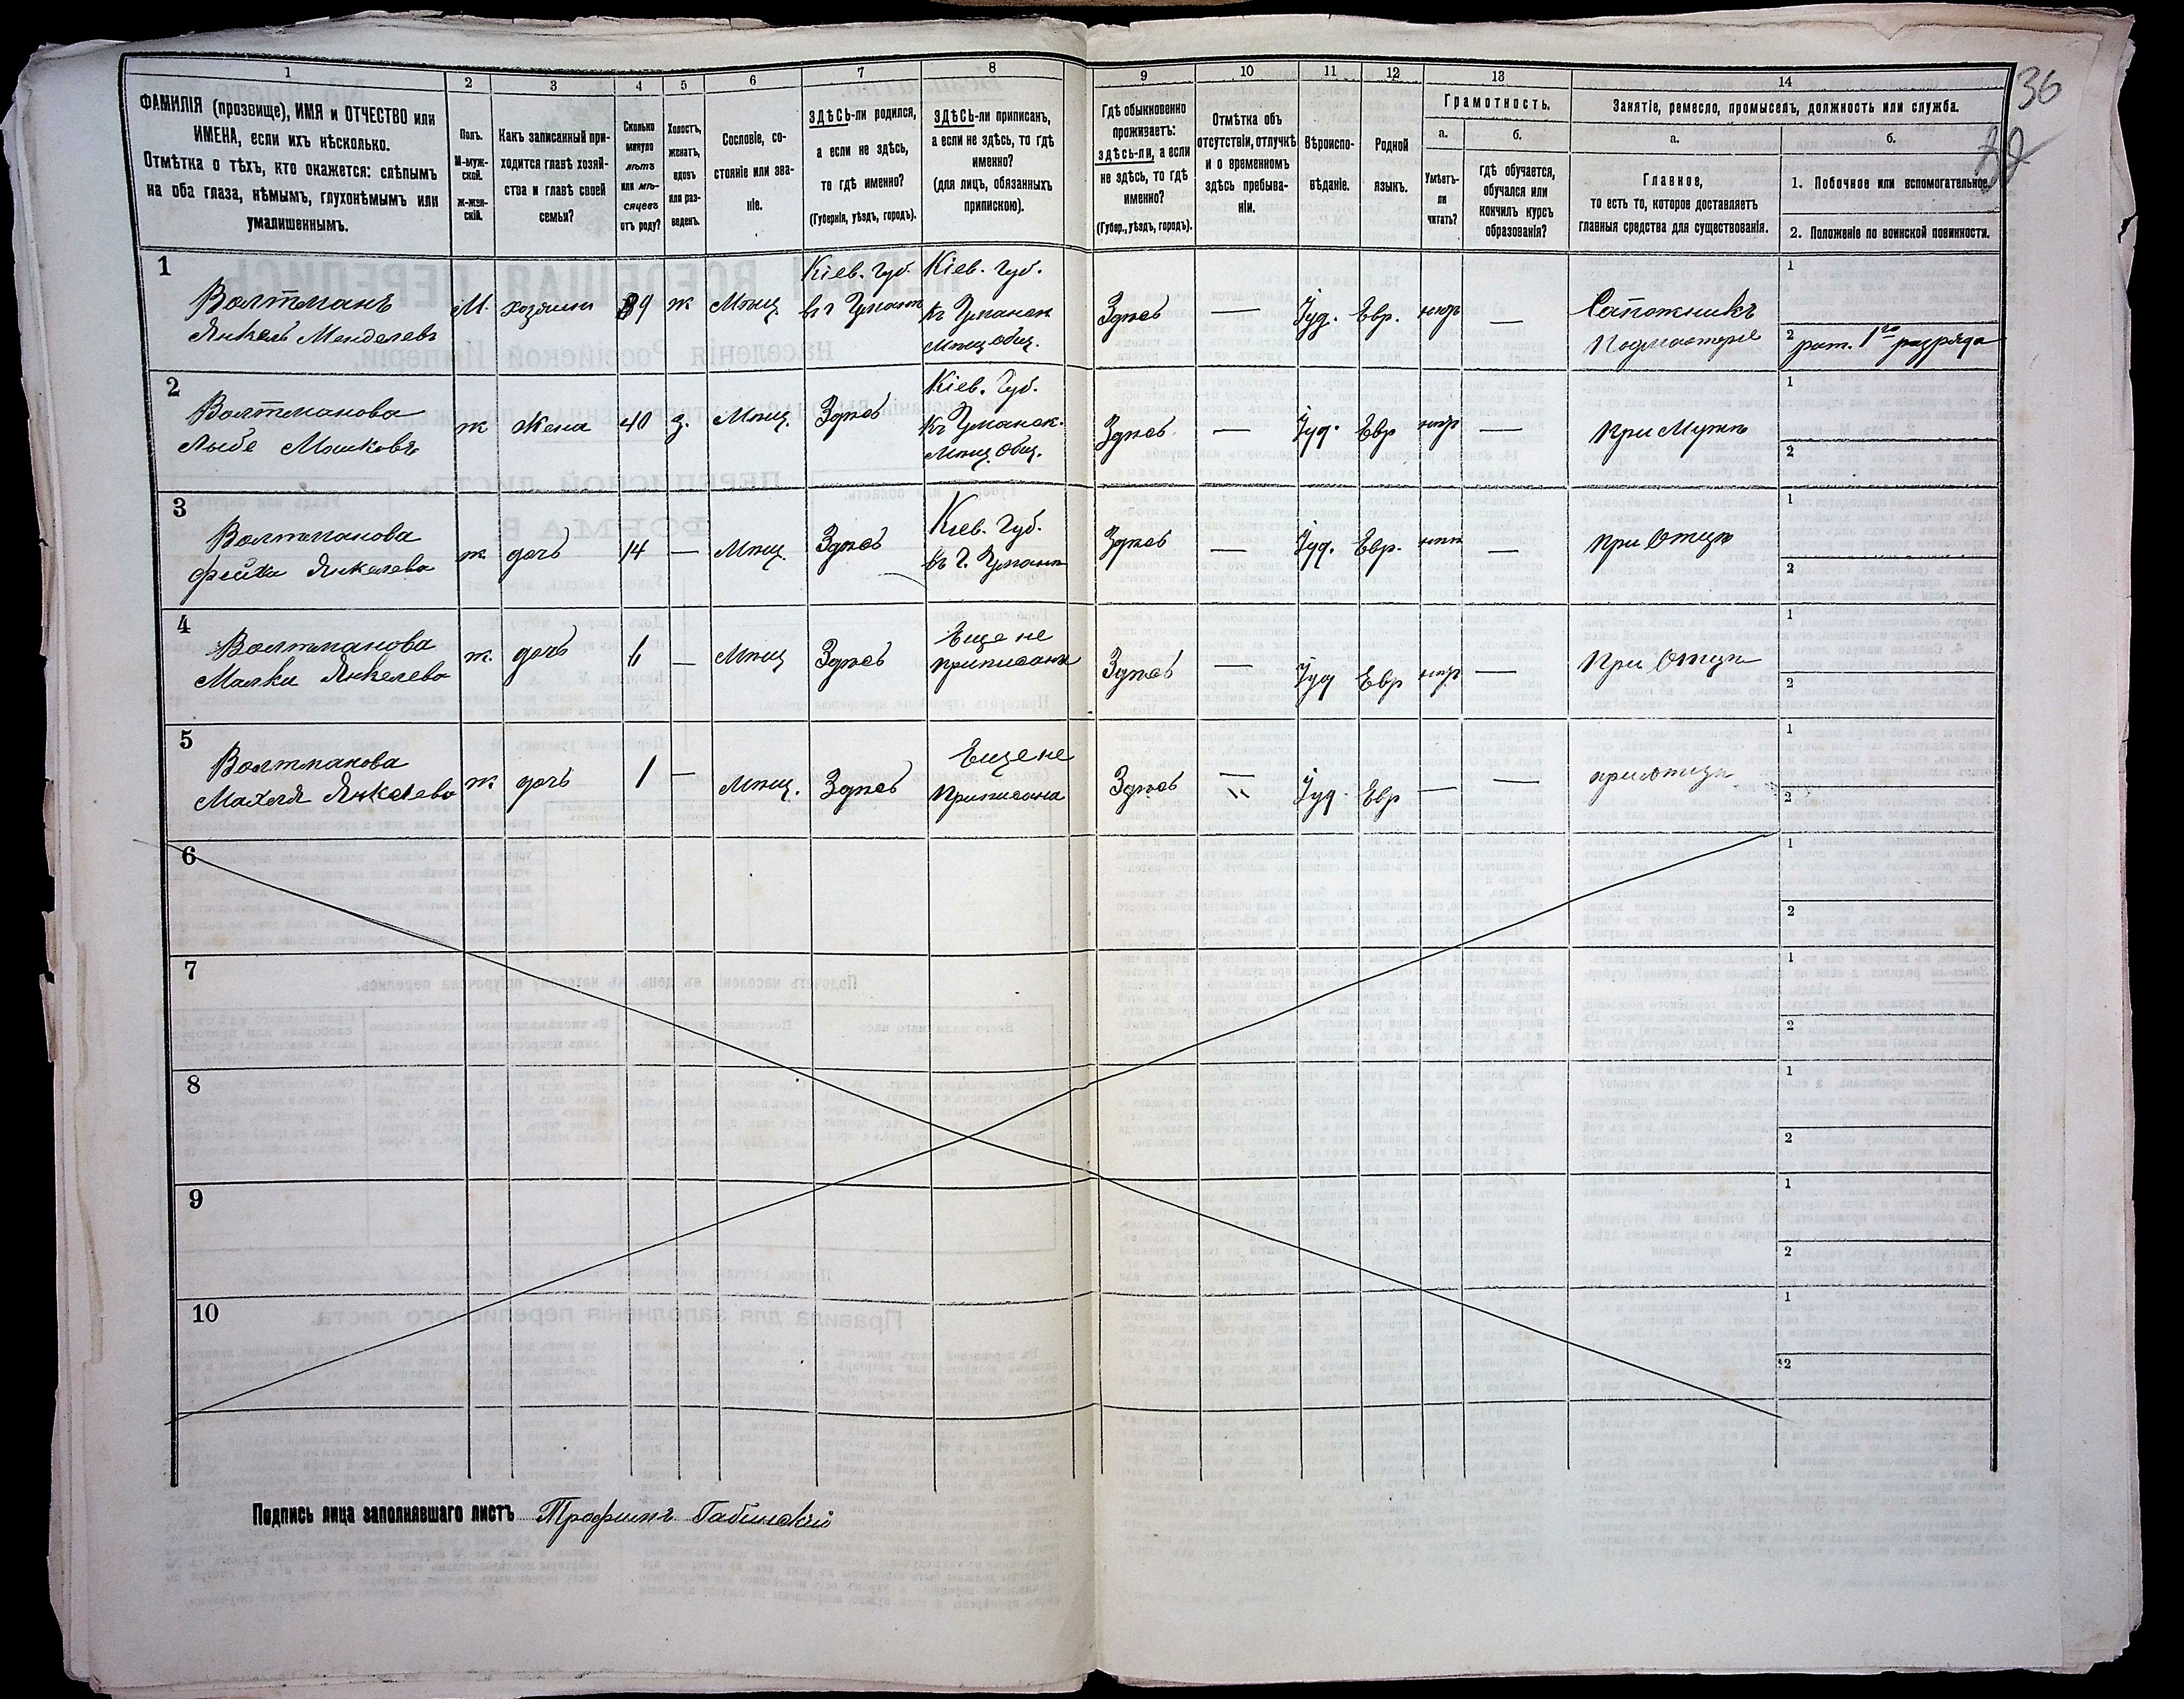 36
1 2 3 4 5 6 7 8 9 10 11 12 13 14
ФАМИЛІЯ (прозвище), ИМЯ и ОТЧЕСТВО или
ИМЕНА, если ихъ нѣсколько.
Отмѣтка о тѣхъ, кто окажется: слѣпымъ
на оба глаза, нѣмымъ, глухонѣмымъ или
умалишеннымъ.
Полъ.
М-муж-
ской.
ж-жен-
скій.
Какъ записанный при-
ходится главѣ хозяй-
ства и главѣ своей
семьи?
Сколько
минуло
лѣтъ
или мѣ-
сяцевъ
отъ роду?
Холостъ,
женатъ,
вдовъ
или раз-
веденъ.
Сословіе, со-
стояніе или зва-
ніе.
ЗДѢСЬ-ли родился,
а если не здѣсь,
то гдѣ именно?
(Губернія, уѣздъ, городъ).
ЗДѢСЬ-ли приписанъ,
а если не здѣсь, то гдѣ
именно?
(для лицъ, обязанныхъ
припискою).
Гдѣ обыкновенно
проживаетъ:
здѣсь-ли, а если
не здѣсь, то гдѣ
именно?
(Губер., уѣздъ, городъ).
Отмѣтка объ
отсутствіи, отлучкѣ
и о временномъ
здѣсь пребыва-
ніи.
Вѣроиспо-
вѣданіе.
Родной
языкъ.
Грамотность.
а.
Умѣетъ-
ли
читать?
б.
гдѣ обучается,
обучался или
кончилъ курсъ
образованія?
Занятіе, ремесло, промыселъ, должность или служба.
а.
Главное,
то есть то, которое доставляетъ
главныя средства для существованія.
б.
1. Побочное или вспомогательное.
2. Положеніе по воинской повинности.
1
Волтманъ
Янкель Менделевъ
М.
хозяинъ
39
ж
Мѣщ.
Кіев. Губ.
въ г Умани
Кіев. Губ.
Къ Уманск
Мѣщ общ.
Здѣсь
—
Іуд.
Евр.
нѣтъ
—
Сапожникъ
Подмастерье
1
2 рат. 1го разряда
2
Волтманова
Лыбе Мошковъ
ж
Жена
40
з.
Мѣщ.
Здѣсь
Кіев. Губ.
Къ Уманск.
Мѣщ. Общ.
Здѣсь
—
Іуд.
Евр
нѣтъ
—
при Мужѣ
1
2
3
Волтманова
Фейга Янкелева
ж.
дочь
14
—
Мѣщ.
Здѣсь
Кіев. Губ.
въ г. Умани
Здѣсь
—
Іуд.
Евр.
нѣтъ
—
при Отцѣ
1
2
4
Волтманова
Малки Янкелева
ж.
дочь
6
—
Мѣщ
Здѣсь
Еще не
приписана
Здѣсь
—
Іуд
Евр
нѣтъ
—
При Отцѣ
1
2
5
Волтманова
Махля Янкелева
ж
дочь
1
—
Мѣщ.
Здѣсь
Еще не
Приписана
Здѣсь
—
Іуд.
Евр
—
—
при отцѣ
1
2
6
1
2
7
1
2
8
1
2
9
1
2
10
1
2
Подпись лица заполнявшаго листъ Трофимъ Габинскій